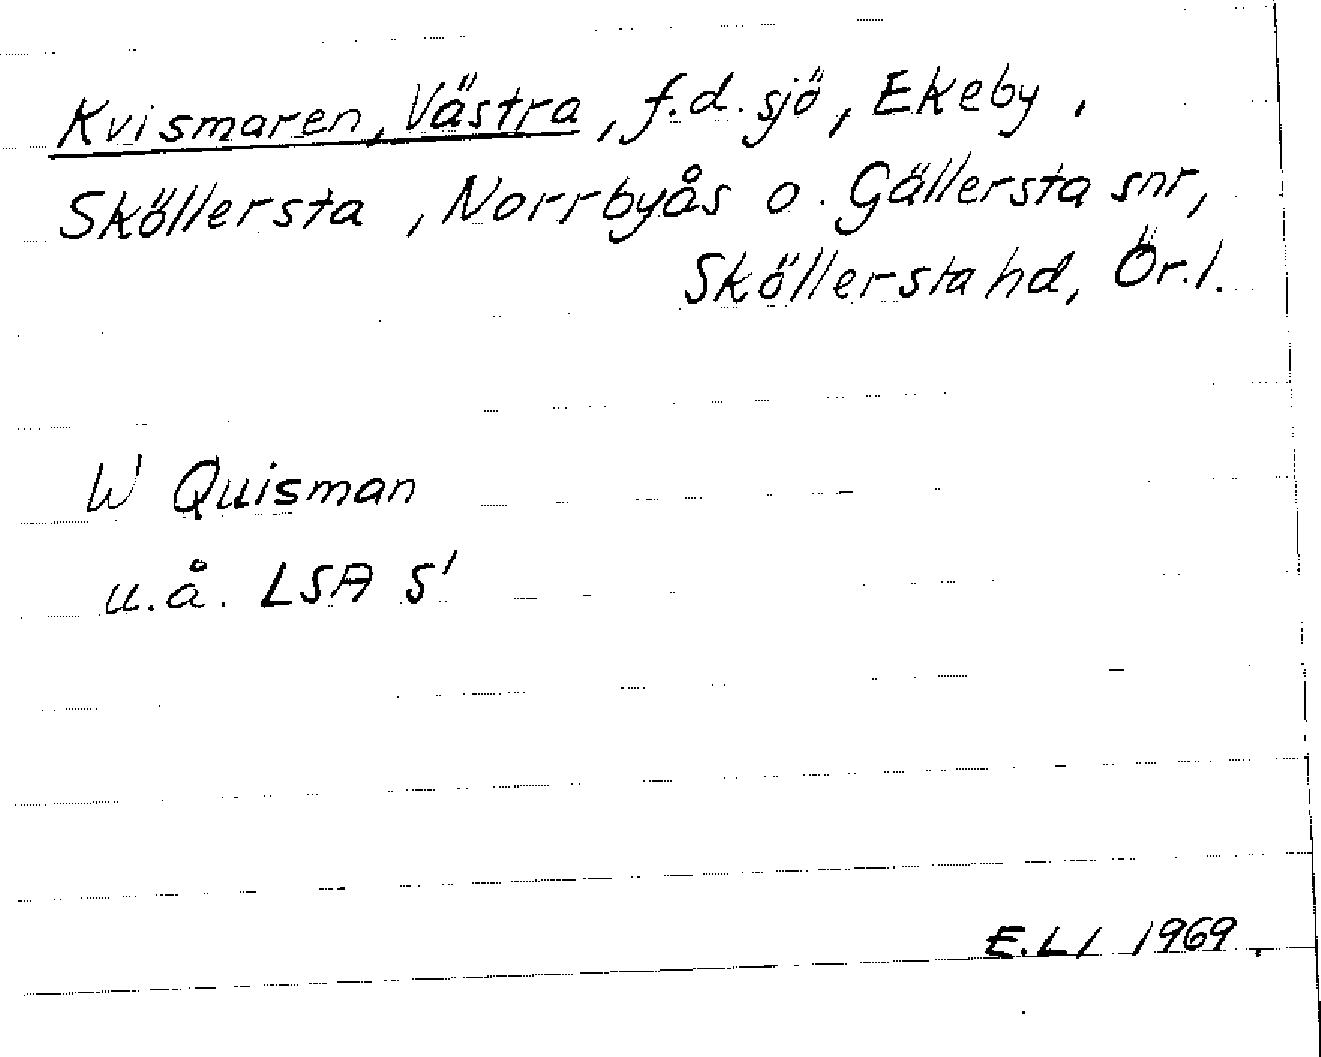 Kvismaren, Västra, f.d. sjö, Ekeby,
Sköllersta, Norrbyås o. Gällersta snr,
Sköllersta hd, Ör.l.
W Quisman
u.å. LSA S1
E.Ll 1969.